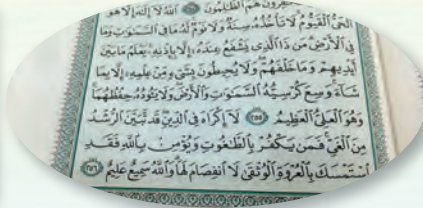 هُمُ الظَّٰلِمُونَ ٱللَّهُ لَآ إِلَٰهَ إِلَّا هُوَ
ٱلْحَىُّ ٱلْقَيُّومُ لَا تَأْخُذُهُۥ سِنَةٌ وَلَا نَوْمٌ لَّهُۥ مَا فِى ٱلسَّمَٰوَٰتِ وَمَا
فِى ٱلْأَرْضِ مَن ذَا ٱلَّذِى يَشْفَعُ عِندَهُۥٓ إِلَّا بِإِذْنِهِۦ يَعْلَمُ مَا بَيْنَ
أَيْدِيهِمْ وَمَا خَلْفَهُمْ وَلَا يُحِيطُونَ بِشَىْءٍ مِّنْ عِلْمِهِۦٓ إِلَّا بِمَا
شَآءَ وَسِعَ كُرْسِيُّهُ ٱلسَّمَٰوَٰتِ وَٱلْأَرْضَ وَلَا يَـُٔودُهُۥ حِفْظُهُمَا
وَهُوَ ٱلْعَلِىُّ ٱلْعَظِيمُ ٢٥٥ لَآ إِكْرَاهَ فِى ٱلدِّينِ قَد تَّبَيَّنَ ٱلرُّشْدُ
مِنَ ٱلْغَىِّ فَمَن يَكْفُرْ بِٱلطَّٰغُوتِ وَيُؤْمِنۢ بِٱللَّهِ فَقَدِ
ٱسْتَمْسَكَ بِٱلْعُرْوَةِ ٱلْوُثْقَىٰ لَا ٱنفِصَامَ لَهَا وَٱللَّهُ سَمِيعٌ عَلِيمٌ ٢٥٦